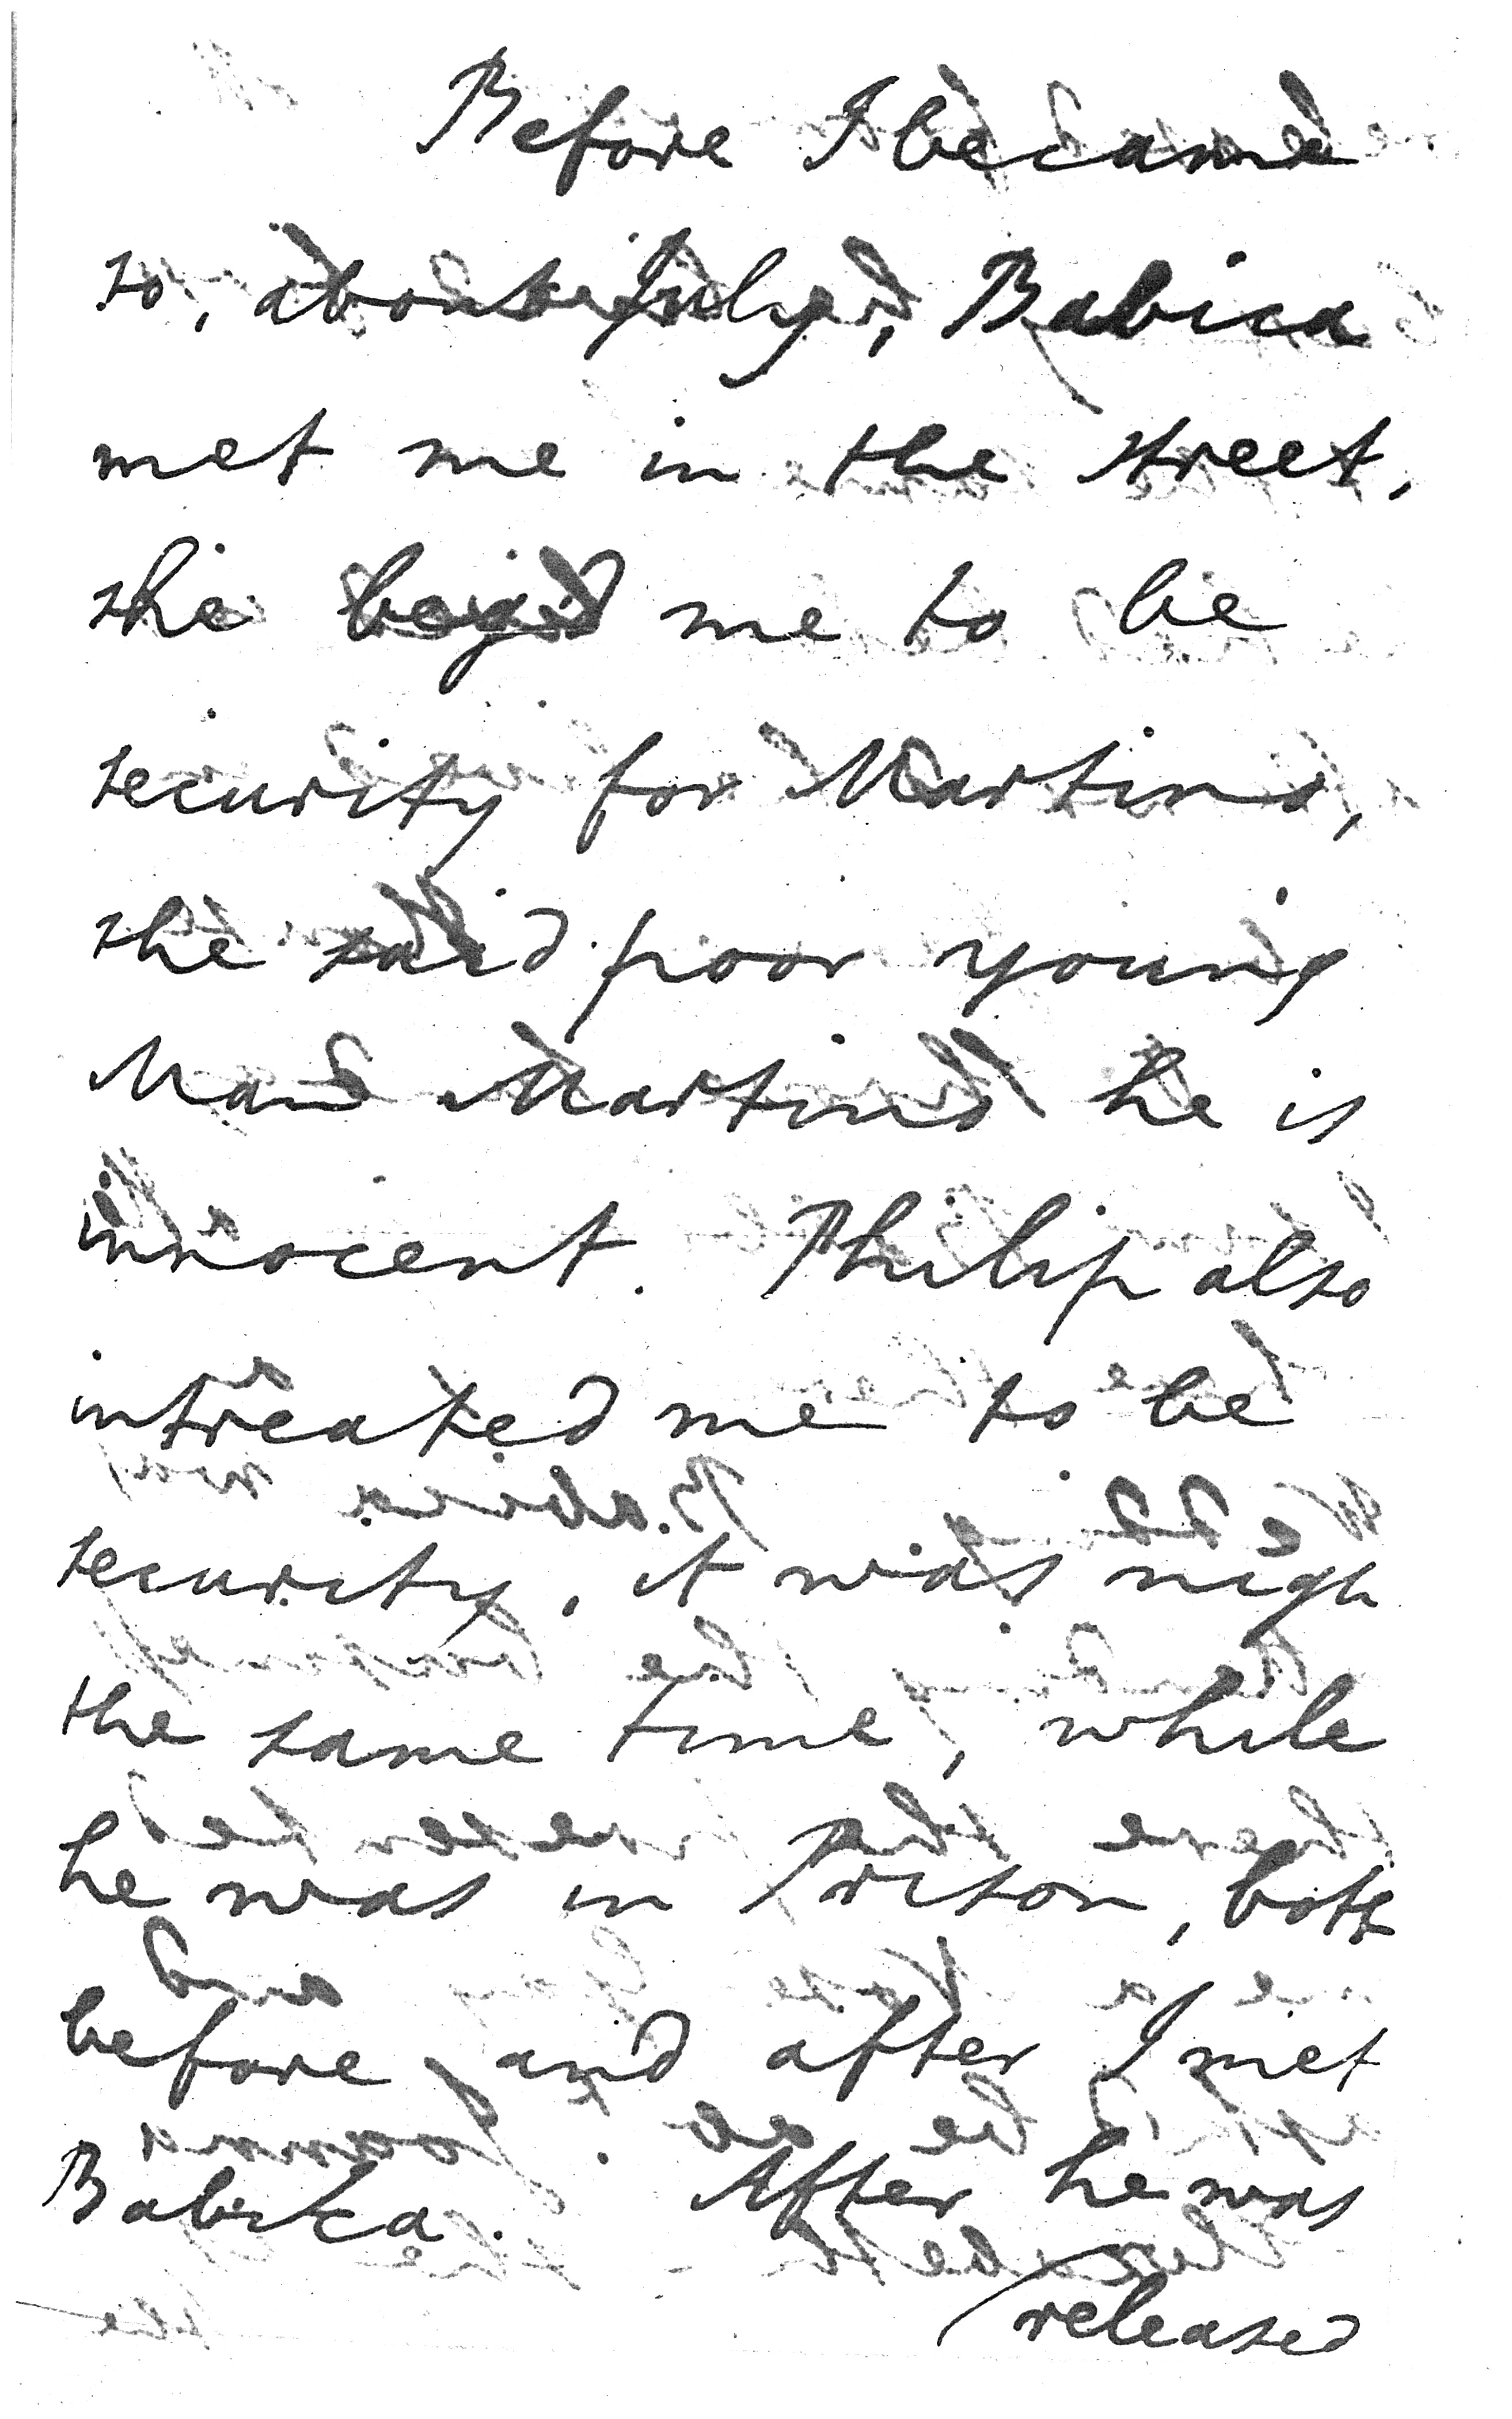 Before I became
so, about July, Babica
met me in the street,
she beg'd me to be
security for Martins,
she said poor young
Man Martins he is
innocent. Philip also
intreated me to be
security, it was nigh
the same time, while
he was in Prison, both
before and after I met
Babica. After he was
released